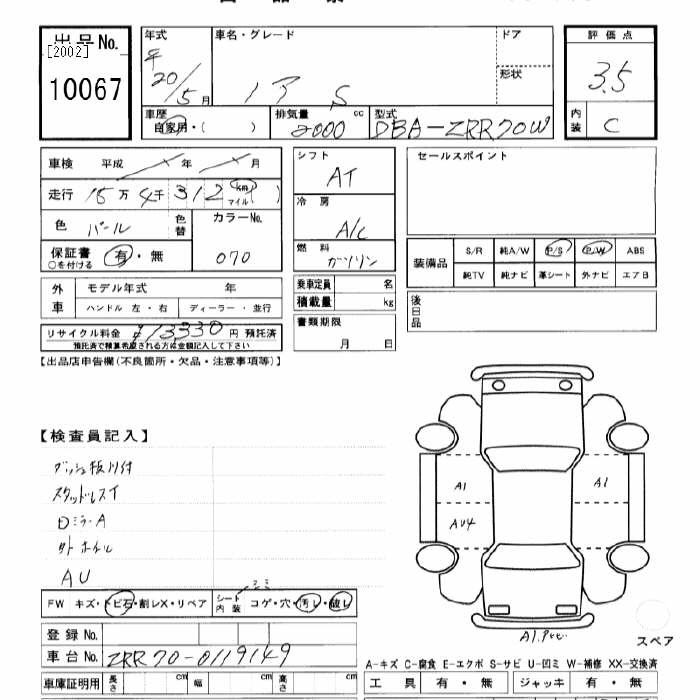 出品No.
[2002]
10067
年式 車名・グレード ドア
年
20/5月
形状
ノア S
評価点
3.5
内装 C
車歴 自家用・( )
排気量 2000 cc
型式 DBA-ZRR70W
車検 平成 年 月
走行 15万4千312 km マイル ( )
色 パール 色替 カラーNo. 070
保証書 有・無
○を付ける
シフト AT
冷房 A/C
燃料 ガソリン
セールスポイント
装備品 S/R 純A/W P/S P/W ABS
純TV 純ナビ 革シート 外ナビ エアB
外車 モデル年式 年
ハンドル 左・右 ディーラー・並行
乗車定員 名
積載量 kg
後日品
リサイクル料金 ¥13330円 預託済
預託済で積算希望される方に金額記入して下さい
書類期限
月 日
【出品店申告欄(不良箇所・欠品・注意事項等)】
【検査員記入】
スタッドレスイ
ロミラーA
外ホイル
AU
A1 A1
AU4
FW キズ・トビ石・割レX・リペア シート内装 コゲ・穴・汚レ・破レ
登録No.
車台No. ZRR70-0119149
車庫証明用 長さ cm 幅 cm 高さ cm
スペア
A-キズ C-腐食 E-エクボ S-サビ U-凹ミ W-補修 XX-交換済
工具 有・無 ジャッキ 有・無